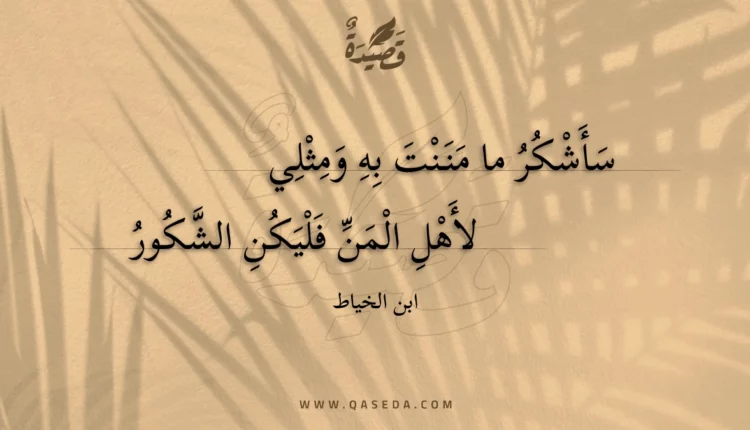 قَصِيْدَةٌ
سَأَشْكُرُ ما مَنَنْتَ بِهِ وَمِثْلِي
لأَهْلِ الْمَنِّ فَلْيَكُنِ الشَّكُورُ
ابن الخياط
WWW.QASEDA.COM